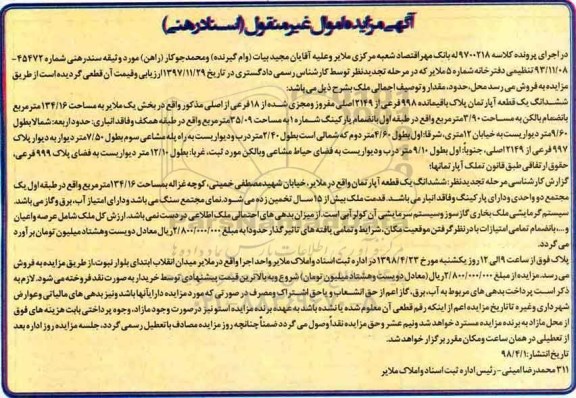 آگهی مزایده اموال غیر منقول (اسناد رهنی)
در اجرای پرونده کلاسه ۹۷۰۰۲۱۸ له بانک مهر اقتصاد شعبه مرکزی ملایر و علیه آقایان مجید بیات (وام گیرنده) و محمد جوکار (راهن) مورد وثیقه سند رهنی شماره ۴۵۴۷۲-
۹۳/۱۱/۰۸ تنظیمی دفترخانه شماره ۵ ملایر که در مرحله تجدیدنظر توسط کارشناس رسمی دادگستری در تاریخ ۱۳۹۷/۱۱/۲۹ ارزیابی و قیمت آن قطعی گردیده است از طریق
مزایده به فروش می رسد محل، حدود، مقدار و توصیف اجمالی ملک بشرح ذیل می باشد:
ششدانگ یک قطعه آپارتمان پلاک باقیمانده ۹۹۸ فرعی از ۲۱۴۹ اصلی مفروز و مجزی شده از ۱۸ فرعی از اصلی مذکور واقع در بخش یک ملایر به مساحت ۱۳۴/۱۶ مترمربع
بانضمام بالکن به مساحت ۳/۹۰ مترمربع واقع در طبقه اول بانضمام پارکینگ شماره ۱ به مساحت ۳۵/۰۹ مترمربع واقع در طبقه همکف وفاقد انباری: حدود اربعه: شمالا بطول
۹/۶۰ متر دیواریست به خیابان ۱۲ متری، شرقا: اول بطول ۴/۶۰ متر دوم که شمالی است بطول ۲/۴۰ متر درب و دیواریست به راه پله مشاعی سوم بطول ۷/۵۰ متر دیوار به دیوار پلاک
۹۹۷ فرعی از ۲۱۴۹ اصلی، جنوبا: اول بطول ۹/۱۰ متر درب و دیواریست به فضای حیاط مشاعی و بالکن مورد ثبت، غربا: بطول ۱۲/۱۰ متر دیواریست به فضای پلاک ۹۹۹ فرعی،
حقوق ارتفاقی طبق قانون تملک آپارتمانها؛
گزارش کارشناسی مرحله تجدیدنظر: ششدانگ یک قطعه آپارتمان واقع در ملایر، خیابان شهید مصطفی خمینی، کوچه غزاله بمساحت ۱۳۴/۱۶ مترمربع واقع در طبقه اول یک
مجتمع دو واحدی و دارای پارکینگ وفاقد انبار می باشد. قدمت ملک بیش از ۱۵ سال تخمین زده می شود. نمای مجتمع سنگ می باشد و دارای امتیاز آب، برق و گاز می باشد.
سیستم گرمایشی ملک بخاری گازسوز و سیستم سرمایشی آن کولر آبی است. از میزان بدهی های احتمالی ملک اطلاعی در دست نمی باشد. ارزش کل ملک شامل عرصه و اعیان
و... بانضمام تمامی امتیازات با در نظر گرفتن موقعیت مکان، شرایط و تمامی یافته های تاثیر گذار حدودا به مبلغ ۲/۸۰۰/۰۰۰/۰۰۰ ریال معادل دویست و هشتاد میلیون تومان برآورد
می گردد.
پلاک فوق از ساعت ۹ الی ۱۲ روز یکشنبه مورخ ۱۳۹۸/۴/۲۳ در اداره ثبت اسناد و املاک ملایر واحد اجرا واقع در ملایر میدان انقلاب ابتدای بلوار نبوت، از طریق مزایده به فروش
می رسد. مزایده از مبلغ ۲/۸۰۰/۰۰۰/۰۰۰ ریال (معادل دویست و هشتاد میلیون تومان) شروع و به بالاترین قیمت پیشنهادی توسط خریدار به صورت نقد فروخته می شود. لازم به
ذکر است پرداخت بدهی های مربوط به آب، برق، گاز اعم از حق انشعاب و یا حق اشتراک و مصرف در صورتی که مورد مزایده دارای آنها باشد و نیز بدهی های مالیاتی و عوارض
شهرداری و غیره تا تاریخ مزایده اعم از اینکه رقم قطعی آن معلوم شده یا نشده باشد به عهده برنده مزایده است و نیز در صورت وجود مازاد، وجوه پرداختی بابت هزینه های فوق
از محل مازاد به برنده مزایده مسترد خواهد شد و نیم عشر و حق مزایده نقداً وصول می گردد ضمناً چنانچه روز مزایده مصادف با تعطیل رسمی گردد، جلسه مزایده روز اداره بعد
از تعطیلی در همان ساعت و مکان مقرر برگزار خواهد شد.
تاریخ انتشار: ۹۸/۴/۱
۳۱۱ محمدرضا امینی - رئیس اداره ثبت اسناد و املاک ملایر